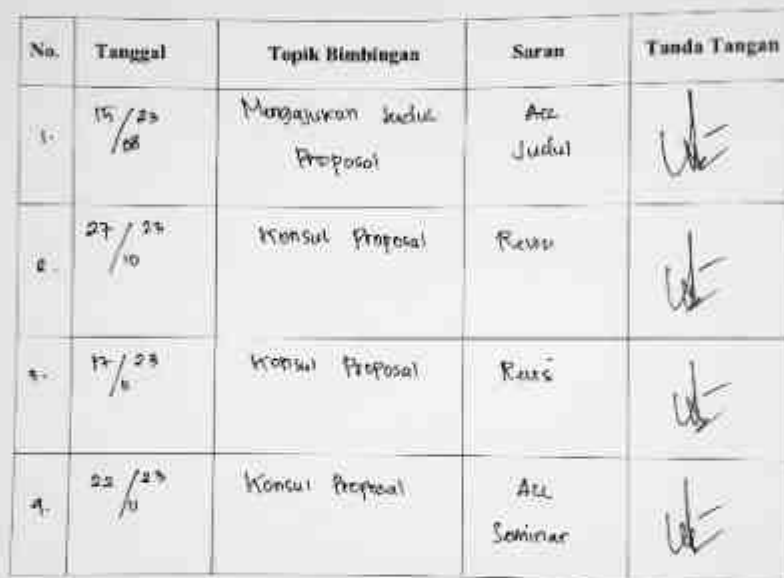 No. Tanggal Topik Bimbingan Saran Tanda Tangan
1. 15/08 23 Mengajukan Judul Acc
Proposal Judul
2. 27/10 23 Konsul Proposal Revisi
3. 17/11 23 Konsul Proposal Revisi
4. 22/11 23 Konsul Proposal Acc
Seminar